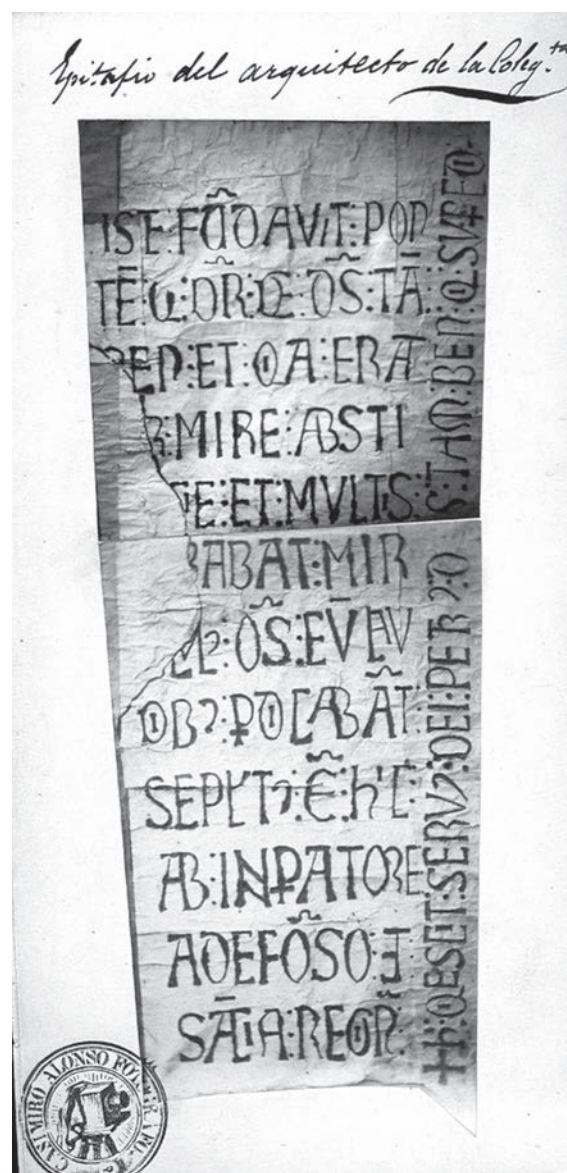 Epitafio del arquitecto de la Coleg.ta
ISE FŪDAVIT: PON
TĒ: Q: DR: DE: DS: TĀ
BEN: ET: QIA: ERAT
R: MIRE: ABSTI
TIE: ET: MVLTIS:
BABAT: MIR
DS: EVM LAV
DIB9: PDICABĀT:
SEPLT9: Ē: HIC:
AB: INPATORE
ADEFŌSO: E
SĀCIA: REGIN:
✝ H: QESET: SERV9: DEI: PETR9: D
S: TAM: BEN: Q: SVPEDI
CASIMIRO ALONSO